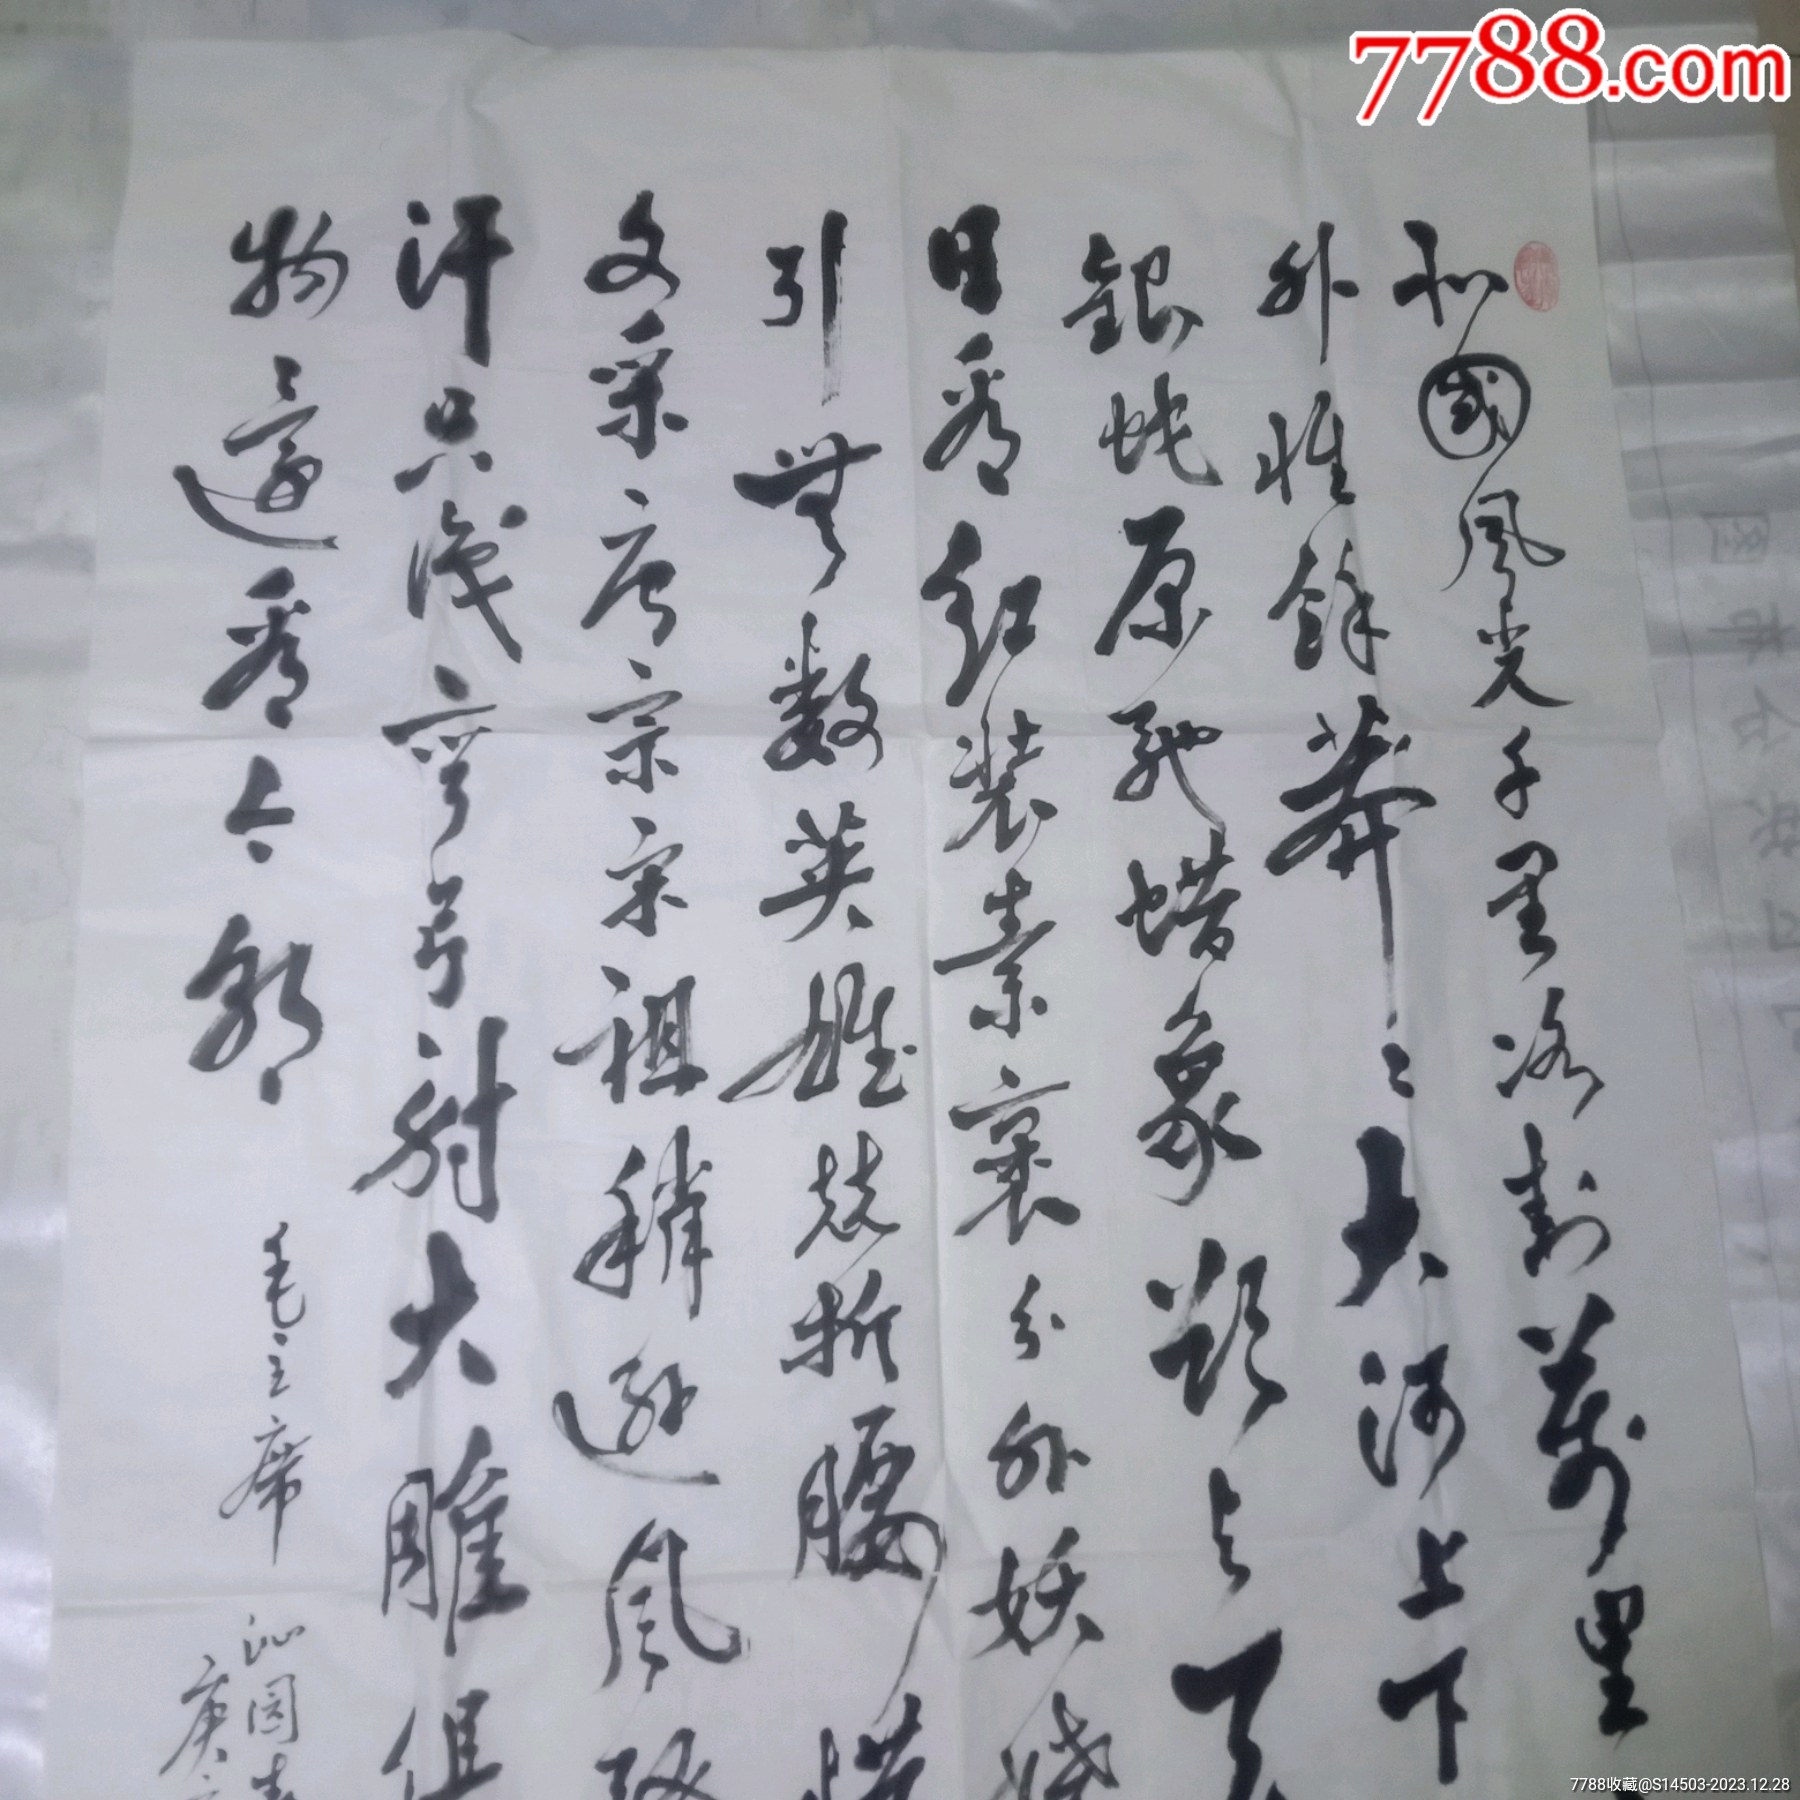 7788.com
北國風光千里冰封萬里
外惟餘莽々大河上下
銀蛇原馳蜡象欲与天
日看红装素裹分外妖娆
引無数英雄競折腰惜
文采唐宗宋祖稍逊風騷
汗只識弯弓射大雕俱
物還看今朝
毛主席
沁園春
庚
7788收藏@S14503-2023.12.28